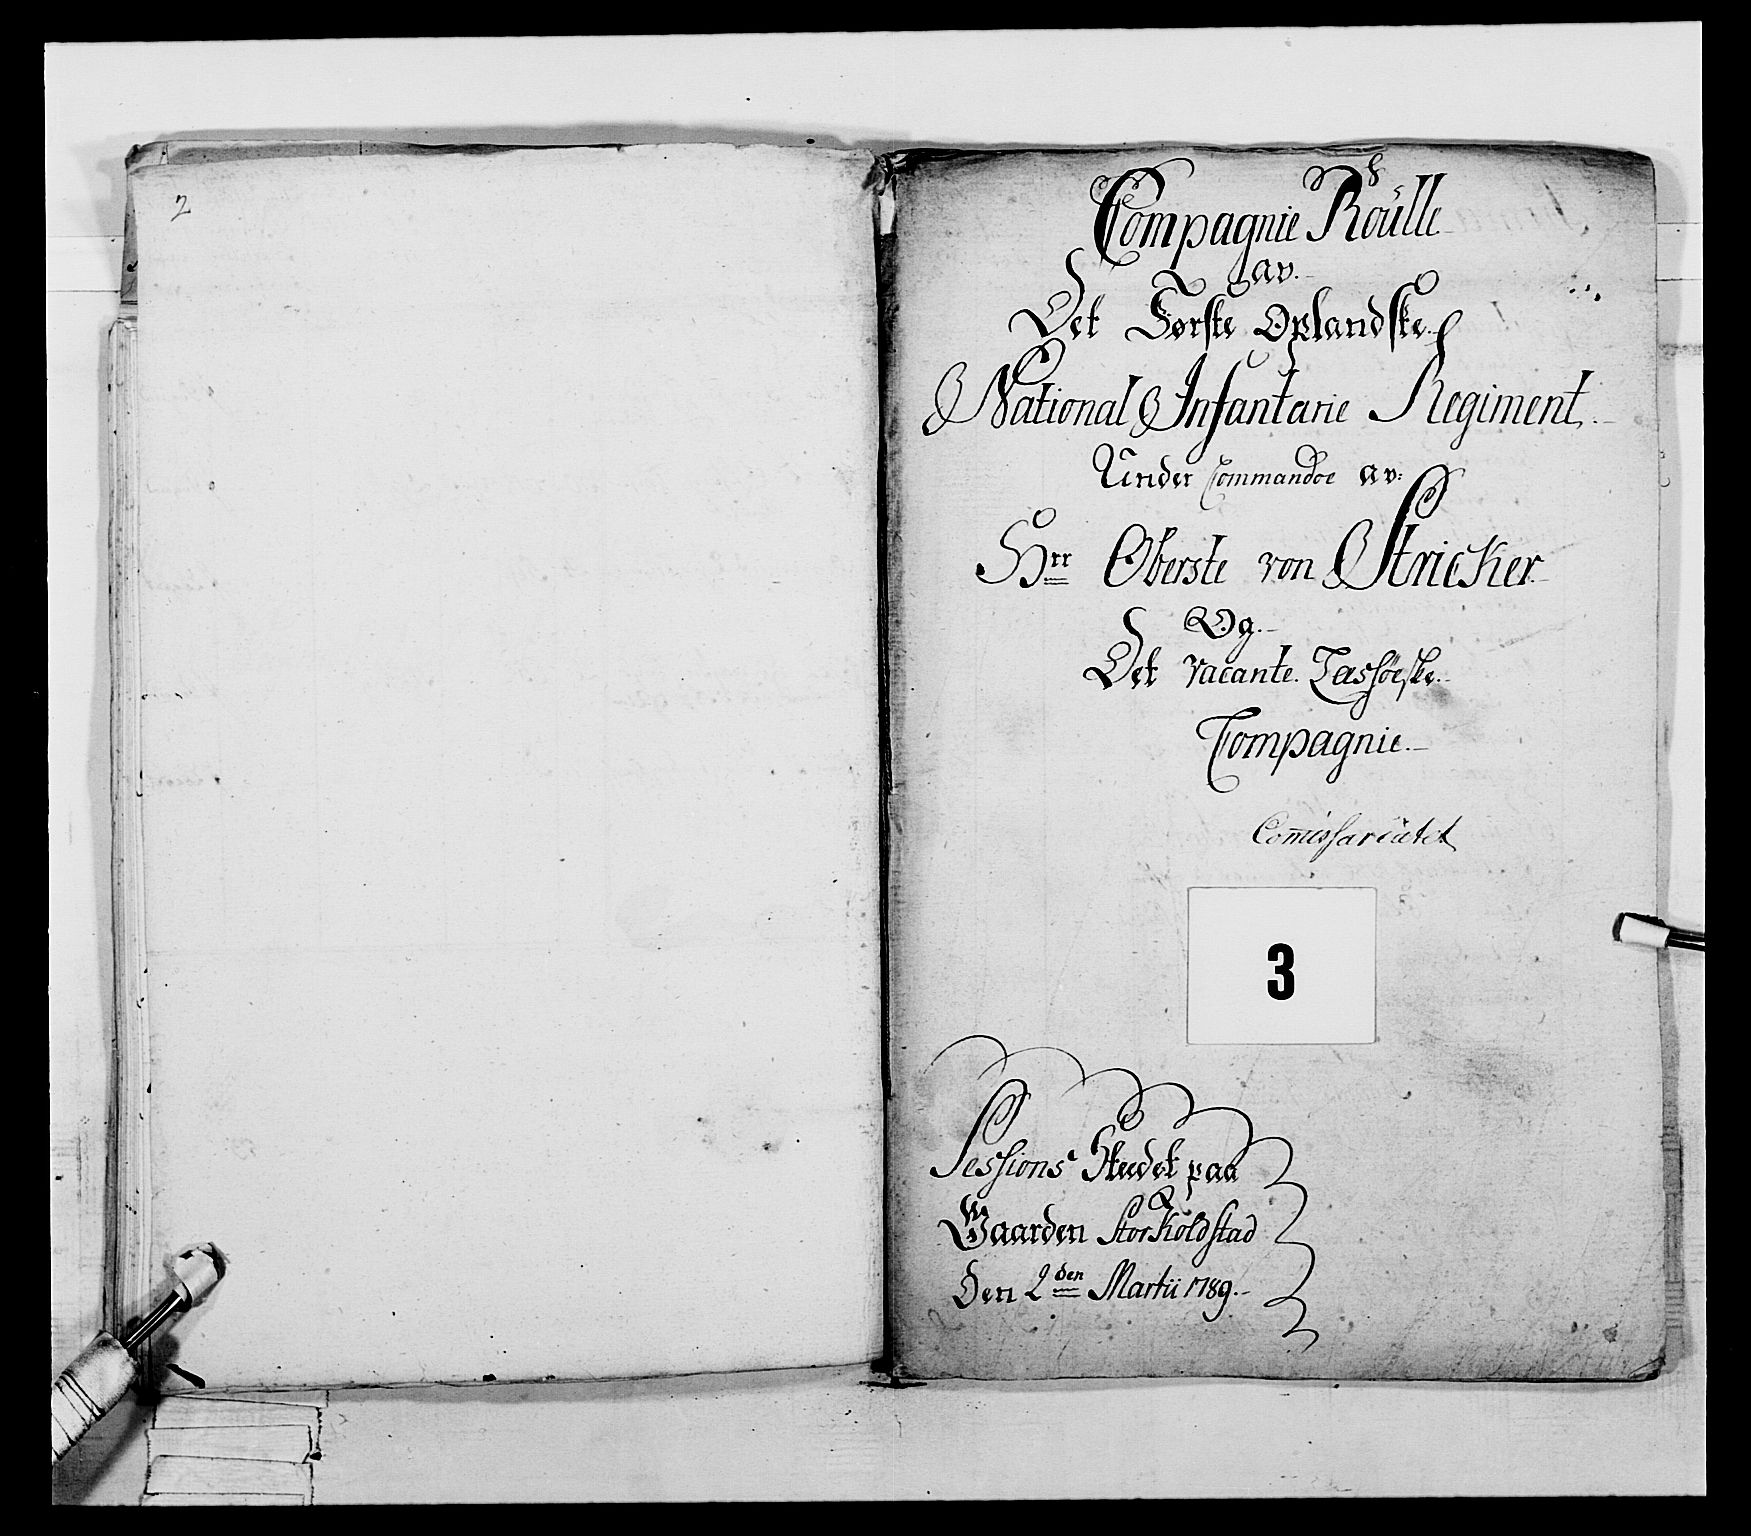 2
Compagnie Roulle
av.
Det Første Oplandske
National Infantarie Regiment.
Under Commandoe av:
Hrr Oberste von Stricker
Og.
Det vacante. Lassøeske.
Compagnie.
Comissariatet
3
Sessions Stedet paa
Gaarden Storkoldstad
Den 2den Martii 1789.